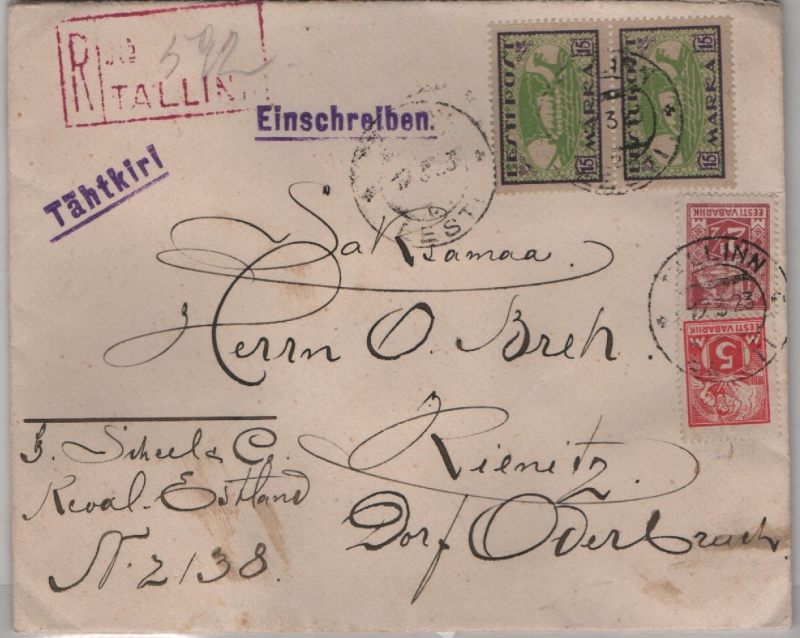 R № 592
TALLINN
Einschreiben.
Tähtkiri
EESTI POST
15 MARKA 15
EESTI POST
15 MARKA 15
EESTI
EESTI VABARIIK
TALLINN
17 3 23
EESTI VABARIIK
5 M
Saksamaa.
Herrn O. Breh.
Rienitz.
Dorf Oderbruch.
G. Scheel & Co.
Reval-Estland
N. 2138.